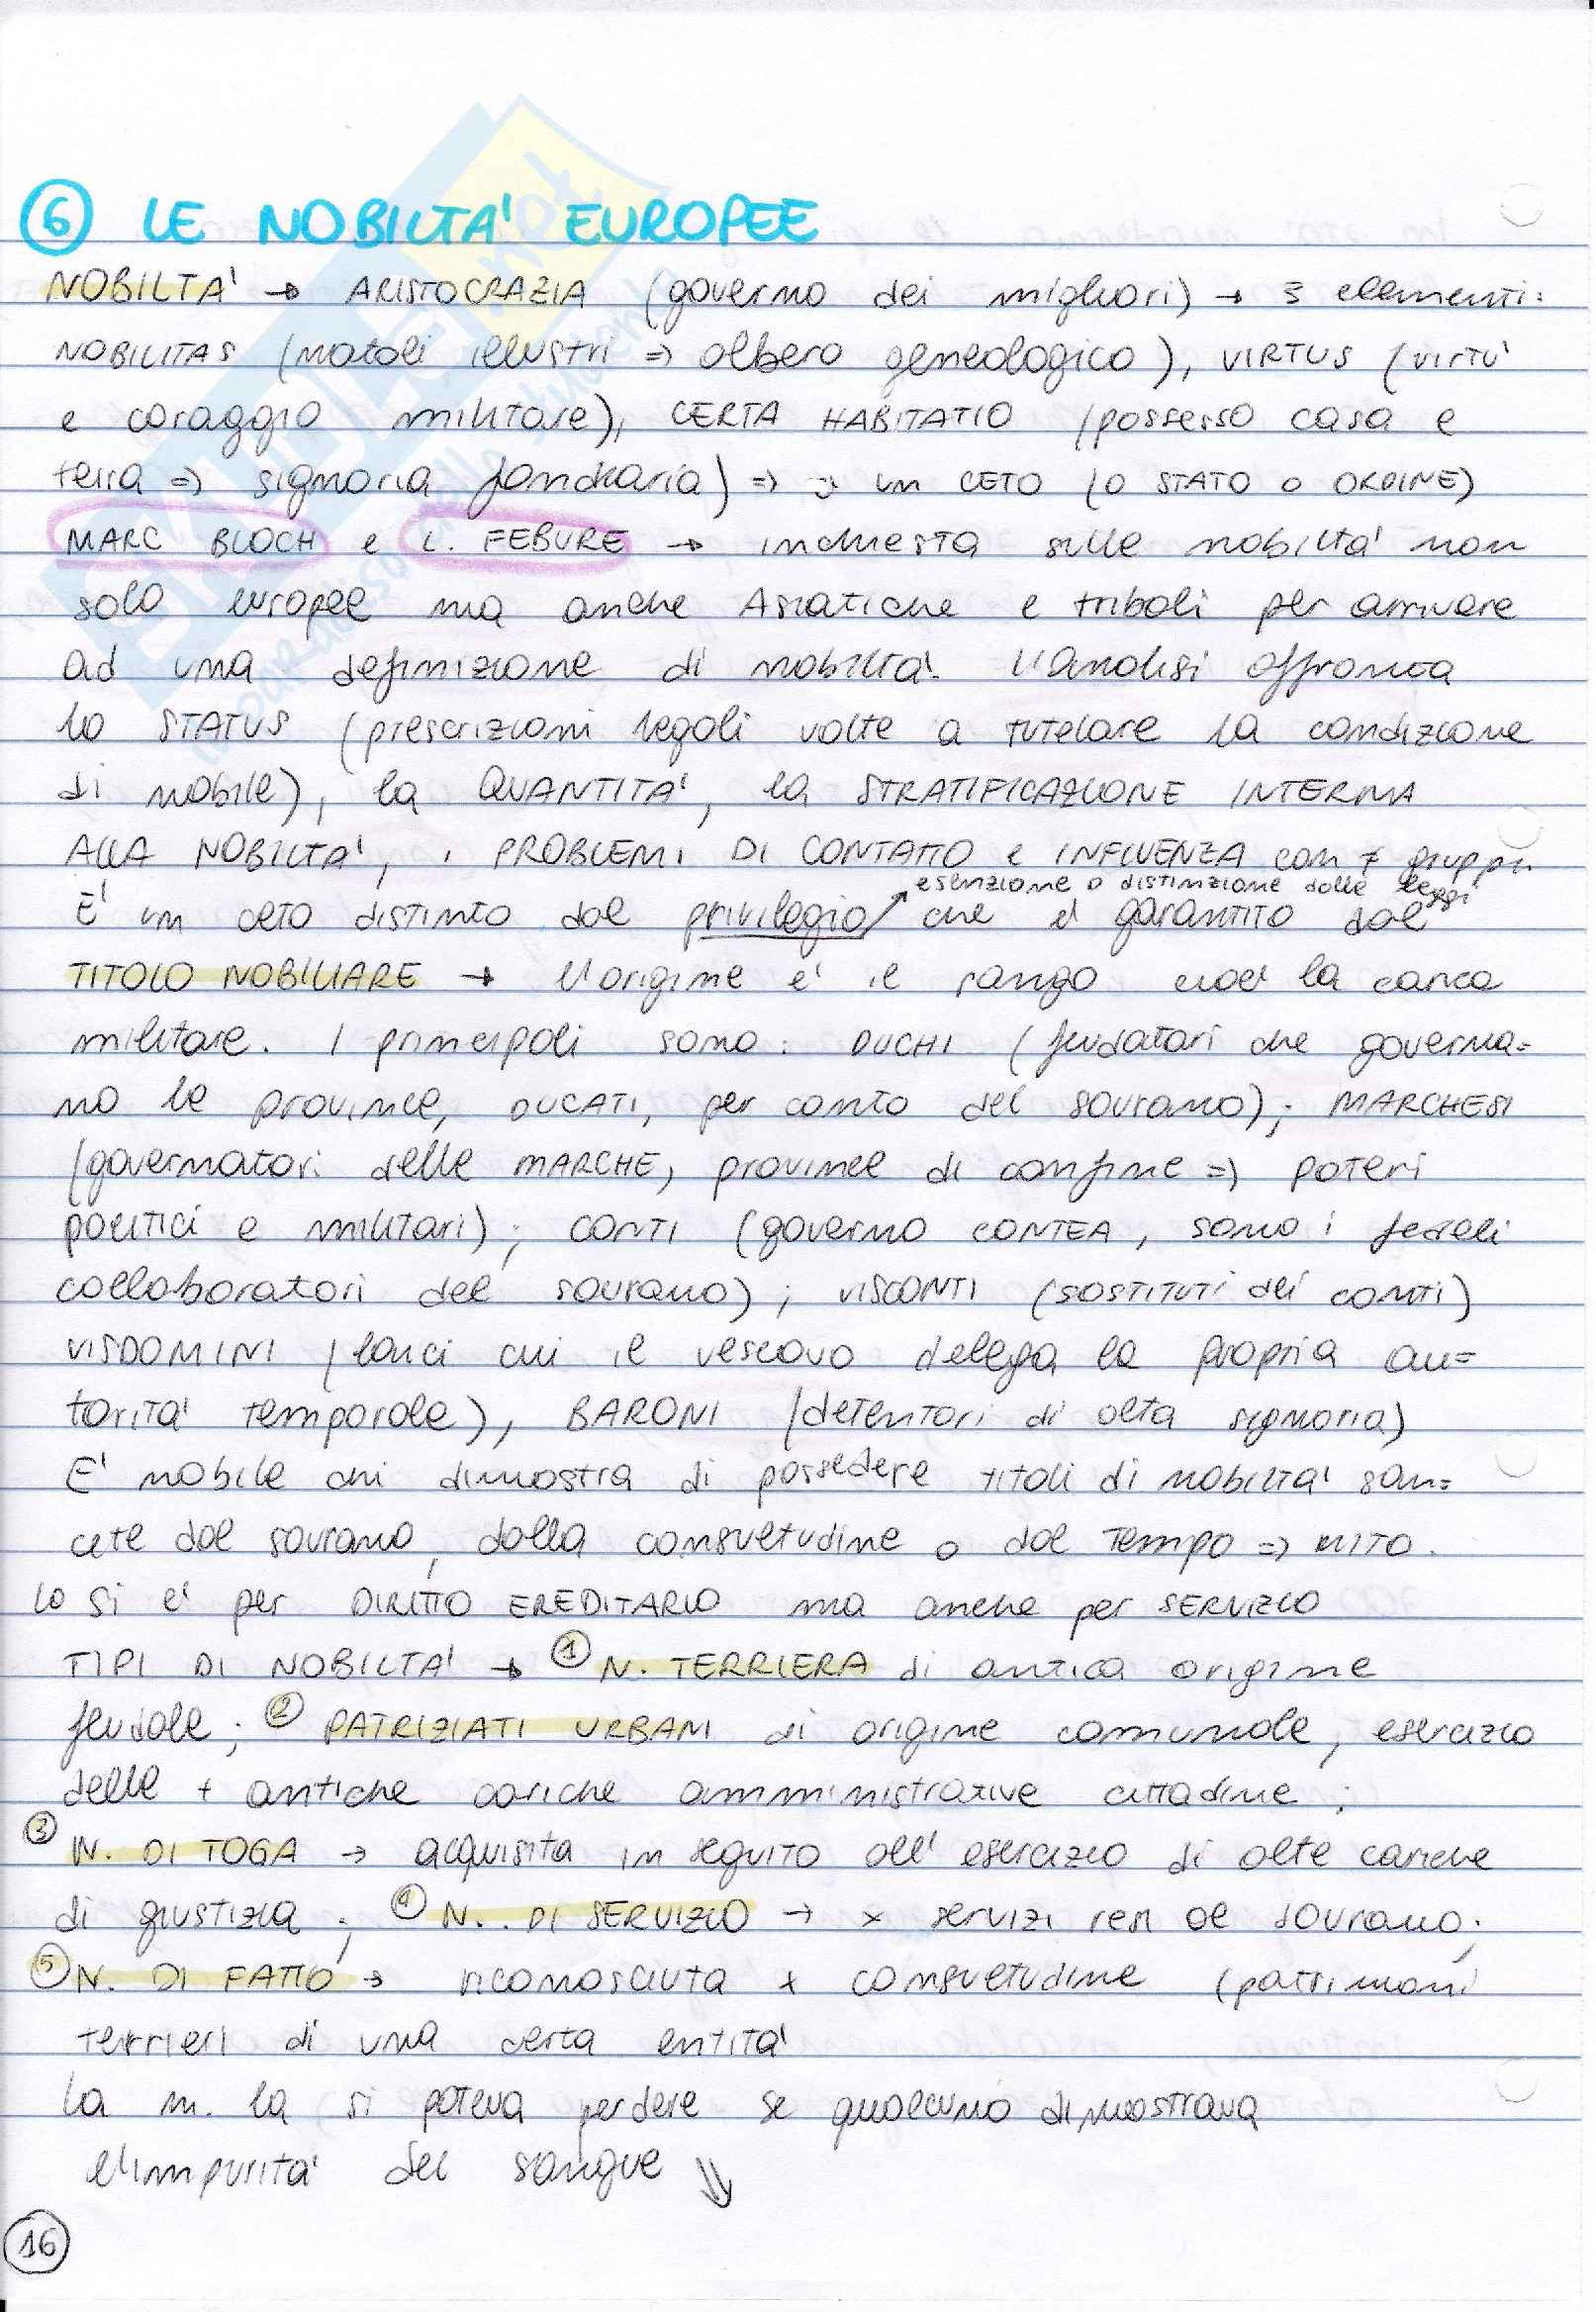 6 LE NOBILTA' EUROPEE
NOBILTA' → ARISTOCRAZIA (governo dei migliori) → 3 elementi:
NOBILITAS (natali illustri => albero geneologico), VIRTUS (virtù
e coraggio militare), CERTA HABITATIO (possesso casa e
terra => signoria fondiaria) => è un CETO (O STATO O ORDINE)
MARC BLOCH e L. FEBURE → inchiesta sulle nobiltà non
solo europee ma anche Asiatiche e tribali per arrivare
ad una definizione di nobiltà. L'analisi affronta
lo STATUS (prescrizioni legali volte a tutelare la condizione
di nobile), la QUANTITA', la STRATIFICAZIONE INTERNA
ALLA NOBILTA', i PROBLEMI DI CONTATTO e INFLUENZA con ≠ gruppi.
esenzione o distinzione dalle leggi
E' un ceto distinto dal privilegio che è garantito dal
TITOLO NOBILIARE → l'origine è il rango cioè la carica
militare. I principali sono: DUCHI (feudatari che governa=
no le province, DUCATI, per conto del sovrano); MARCHESI
(governatori delle MARCHE, province di confine => poteri
politici e militari); CONTI (governo CONTEA, sono i fedeli
collaboratori del sovrano); VISCONTI (sostituti dei conti)
VISDOMINI (laici cui il vescovo delega la propria au=
torità temporale), BARONI (detentori di alta signoria)
E' nobile chi dimostra di possedere titoli di nobiltà san=
cite dal sovrano, dalla consuetudine o dal tempo => MITO.
Lo si è per DIRITTO EREDITARIO ma anche per SERVIZIO
TIPI DI NOBILTA' → 1 N. TERRIERA di antica origine
feudale; 2 PATRIZIATI URBANI di origine comunale, esercizio
delle + antiche cariche amministrative cittadine;
3 N. DI TOGA → acquisita in seguito all'esercizio di alte cariche
di giustizia; 4 N. DI SERVIZIO → x servizi resi al sovrano;
5 N. DI FATTO → riconosciuta x consuetudine (patrimoni
terrieri di una certa entità
La n. la si poteva perdere se qualcuno dimostrava
l'impurità del sangue ⇓
16